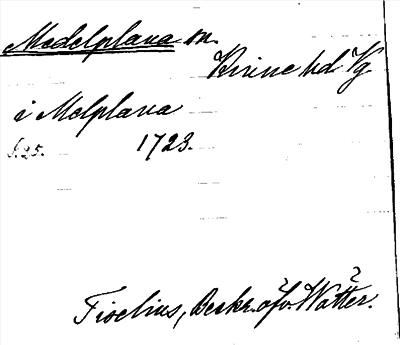 Medelplana sn.
Kinne hd Vg
i Melplana
s. 25. 1723.
Tiselius, Beskr. öfv. Wätter.